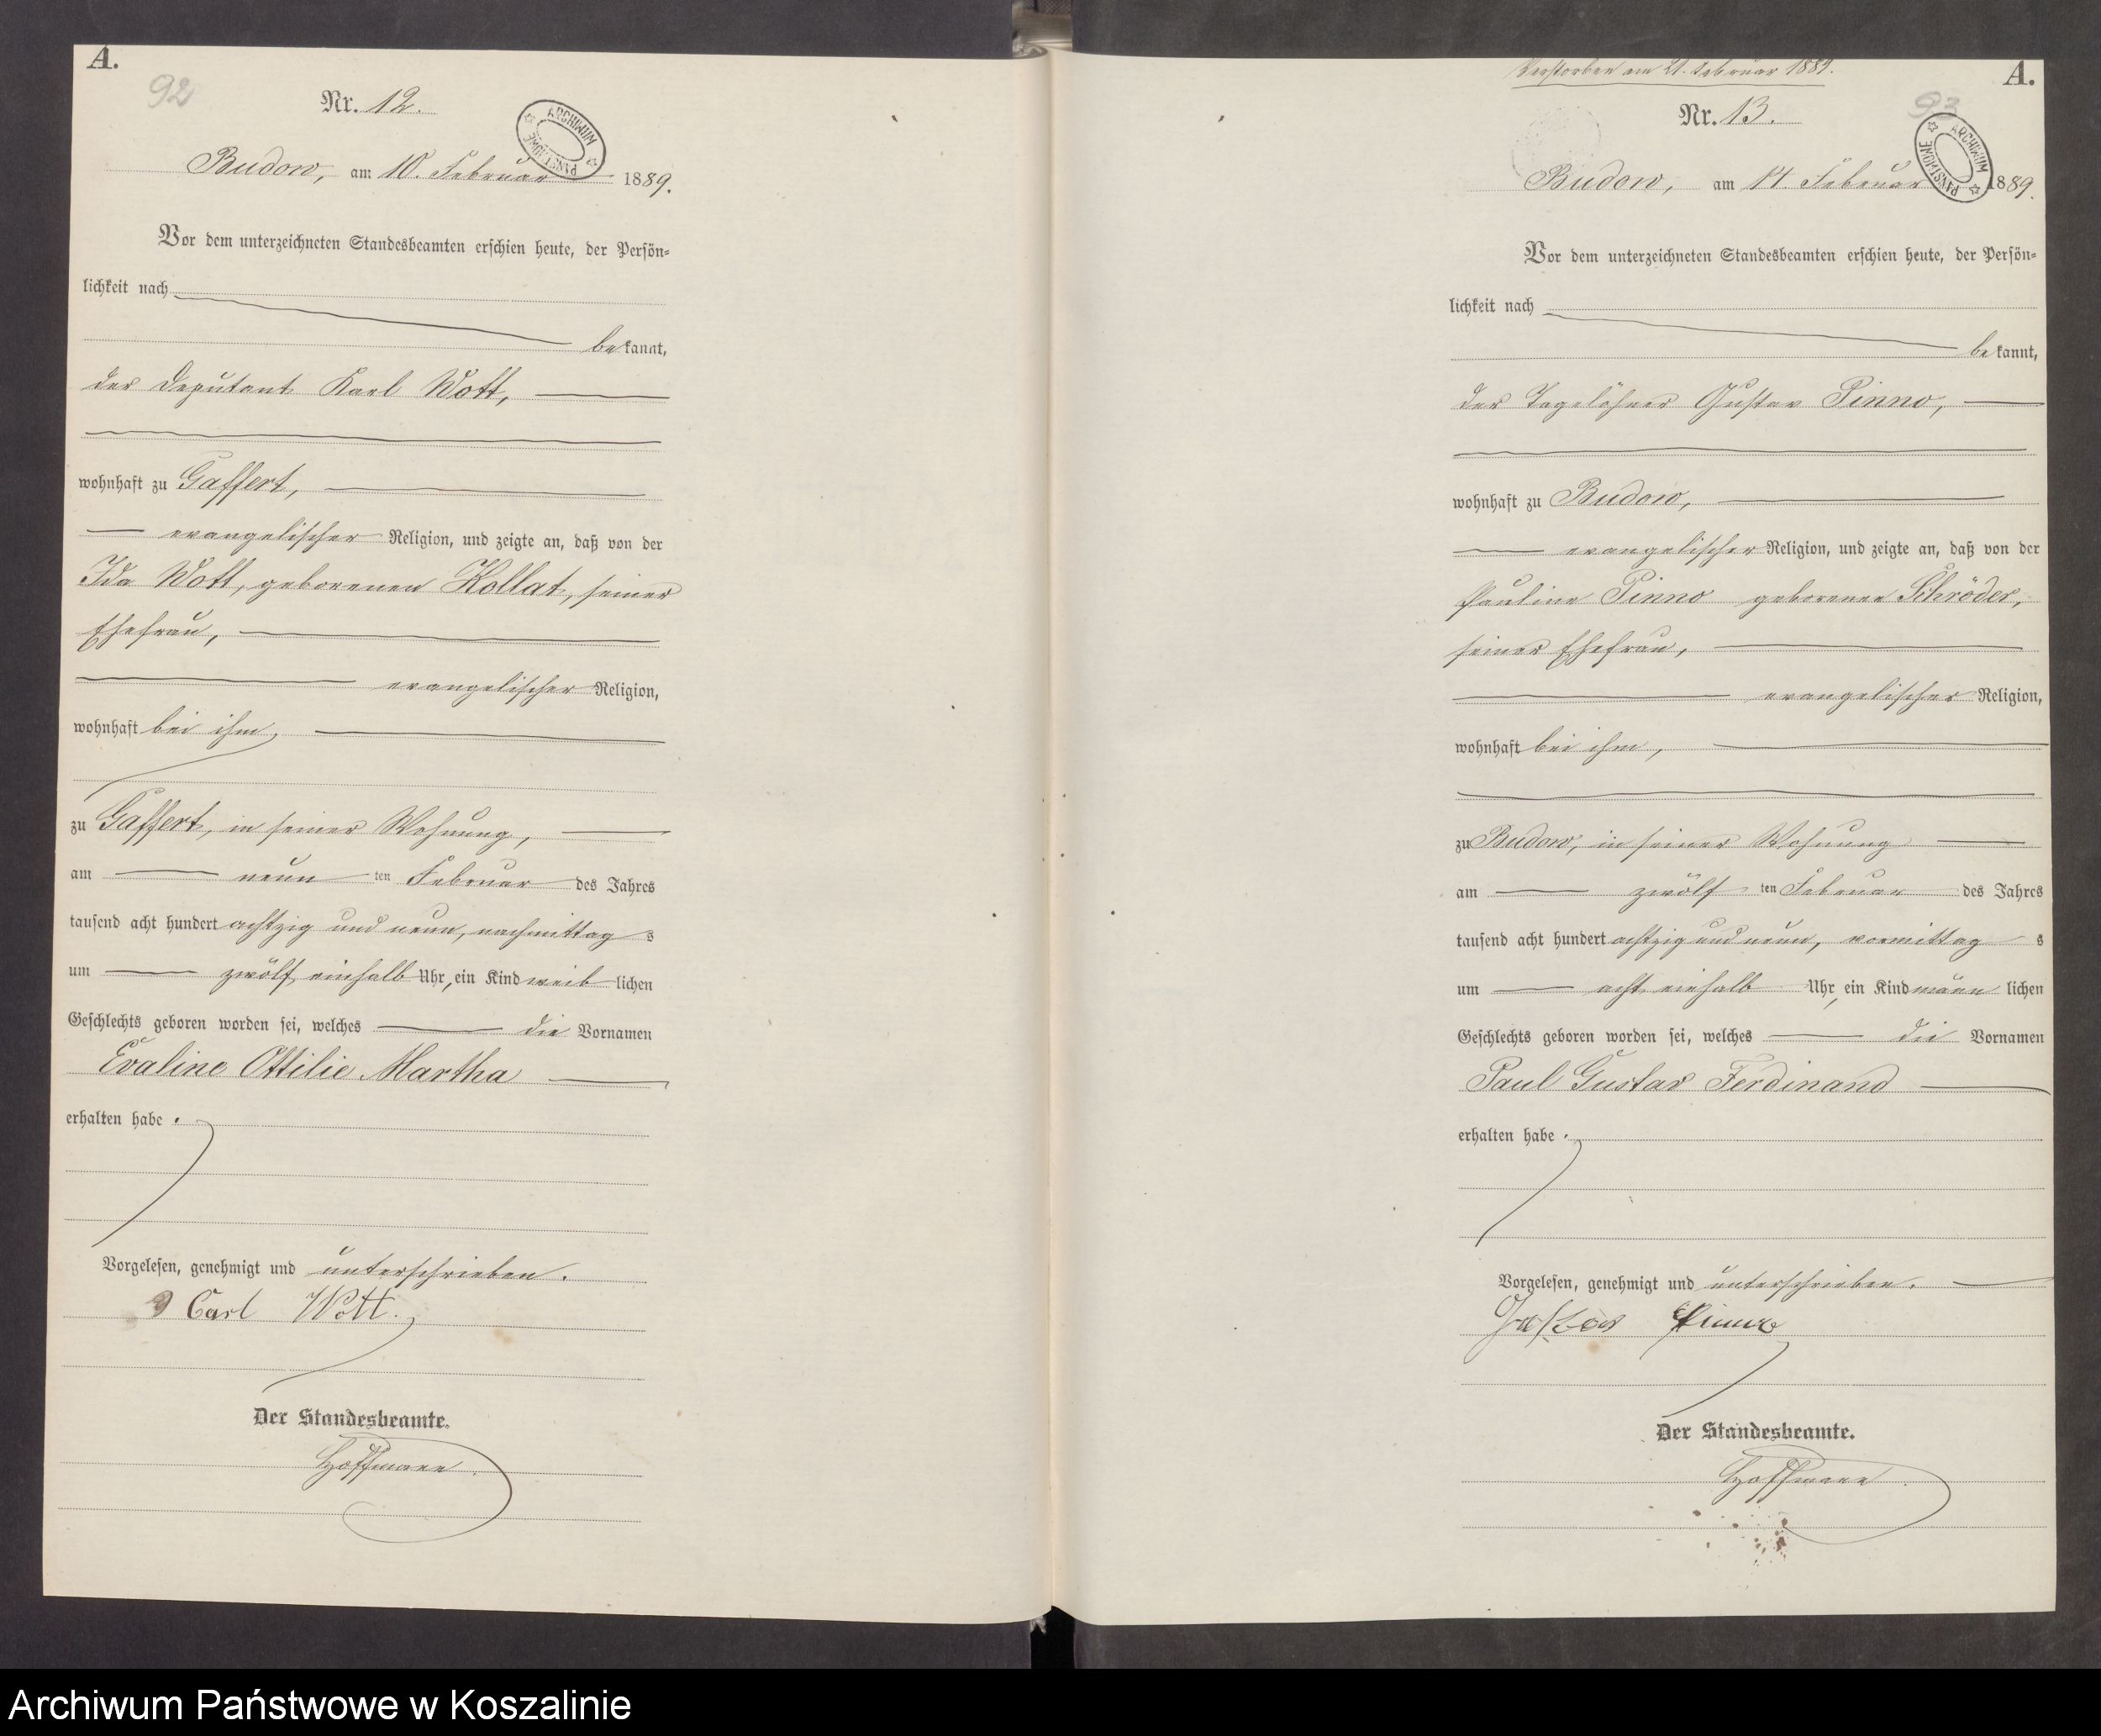 A.
92
Nr. 12.
ARCHIWUM PAŃSTWOWE
Budow, am 10. Februar 1889.
Vor dem unterzeichneten Standesbeamten erschien heute, der Persön-
lichkeit nach
bekannt,
der Deputant Karl Wott,
wohnhaft zu Gaffert,
evangelischer Religion, und zeigte an, daß von der
Ida Wott, geborenen Kollat, seiner
Ehefrau,
evangelischer Religion,
wohnhaft bei ihm,
zu Gaffert, in seiner Wohnung,
am neun ten Februar des Jahres
tausend acht hundert achtzig und neun, nachmittag s
um zwölf einhalb Uhr, ein Kind weib lichen
Geschlechts geboren worden sei, welches die Vornamen
Evaline Ottilie Martha
erhalten habe.
Vorgelesen, genehmigt und unterschrieben.
Carl Wott.
Der Standesbeamte.
Hoffmann.
Verstorben am 21. Februar 1889.
A.
93
Nr. 13.
ARCHIWUM PAŃSTWOWE
Budow, am 14. Februar 1889.
Vor dem unterzeichneten Standesbeamten erschien heute, der Persön-
lichkeit nach
bekannt,
der Tagelöhner Gustav Pinno,
wohnhaft zu Budow,
evangelischer Religion, und zeigte an, daß von der
Pauline Pinno geborenen Schröder,
seiner Ehefrau,
evangelischer Religion,
wohnhaft bei ihm,
zu Budow, in seiner Wohnung
am zwölf ten Februar des Jahres
tausend acht hundert achtzig und neun, vormittag s
um acht einhalb Uhr, ein Kind männ lichen
Geschlechts geboren worden sei, welches die Vornamen
Paul Gustav Ferdinand
erhalten habe.
Vorgelesen, genehmigt und unterschrieben.
Gustav Pinno
Der Standesbeamte.
Hoffmann.
Archiwum Państwowe w Koszalinie